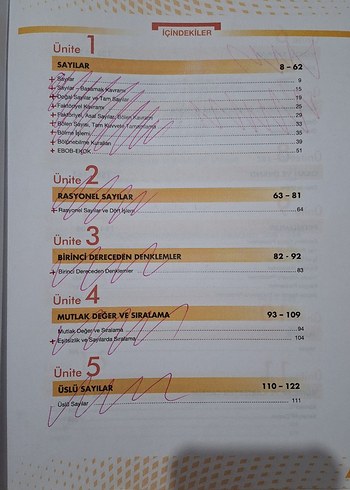 İÇİNDEKİLER
Ünite 1
SAYILAR 8 – 62
Sayılar 9
Sayılar – Basamak Kavramı 15
Doğal Sayılar ve Tam Sayılar 19
Faktöriyel Kavramı 25
Faktöriyel, Asal Sayılar, Bölen Kavramı 29
Bölen Sayısı, Tam Kuvvete Tamamlama 33
Bölme İşlemi 35
Bölünebilme Kuralları 39
EBOB-EKOK 51
Ünite 2
RASYONEL SAYILAR 63 – 81
Rasyonel Sayılar ve Dört İşlem 64
Ünite 3
BİRİNCİ DERECEDEN DENKLEMLER 82 - 92
Birinci Dereceden Denklemler 83
Ünite 4
MUTLAK DEĞER VE SIRALAMA 93 – 109
Mutlak Değer ve Sıralama 94
Eşitsizlik ve Sayılarda Sıralama 104
Ünite 5
ÜSLÜ SAYILAR 110 – 122
Üslü Sayılar 111